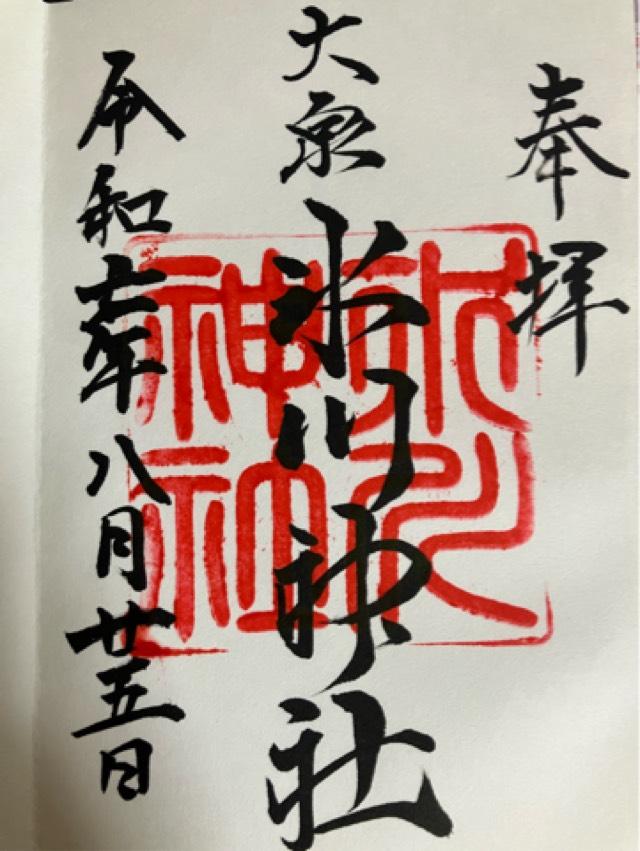 奉拝
大泉氷川神社
令和七年八月廿五日
氷川
神社